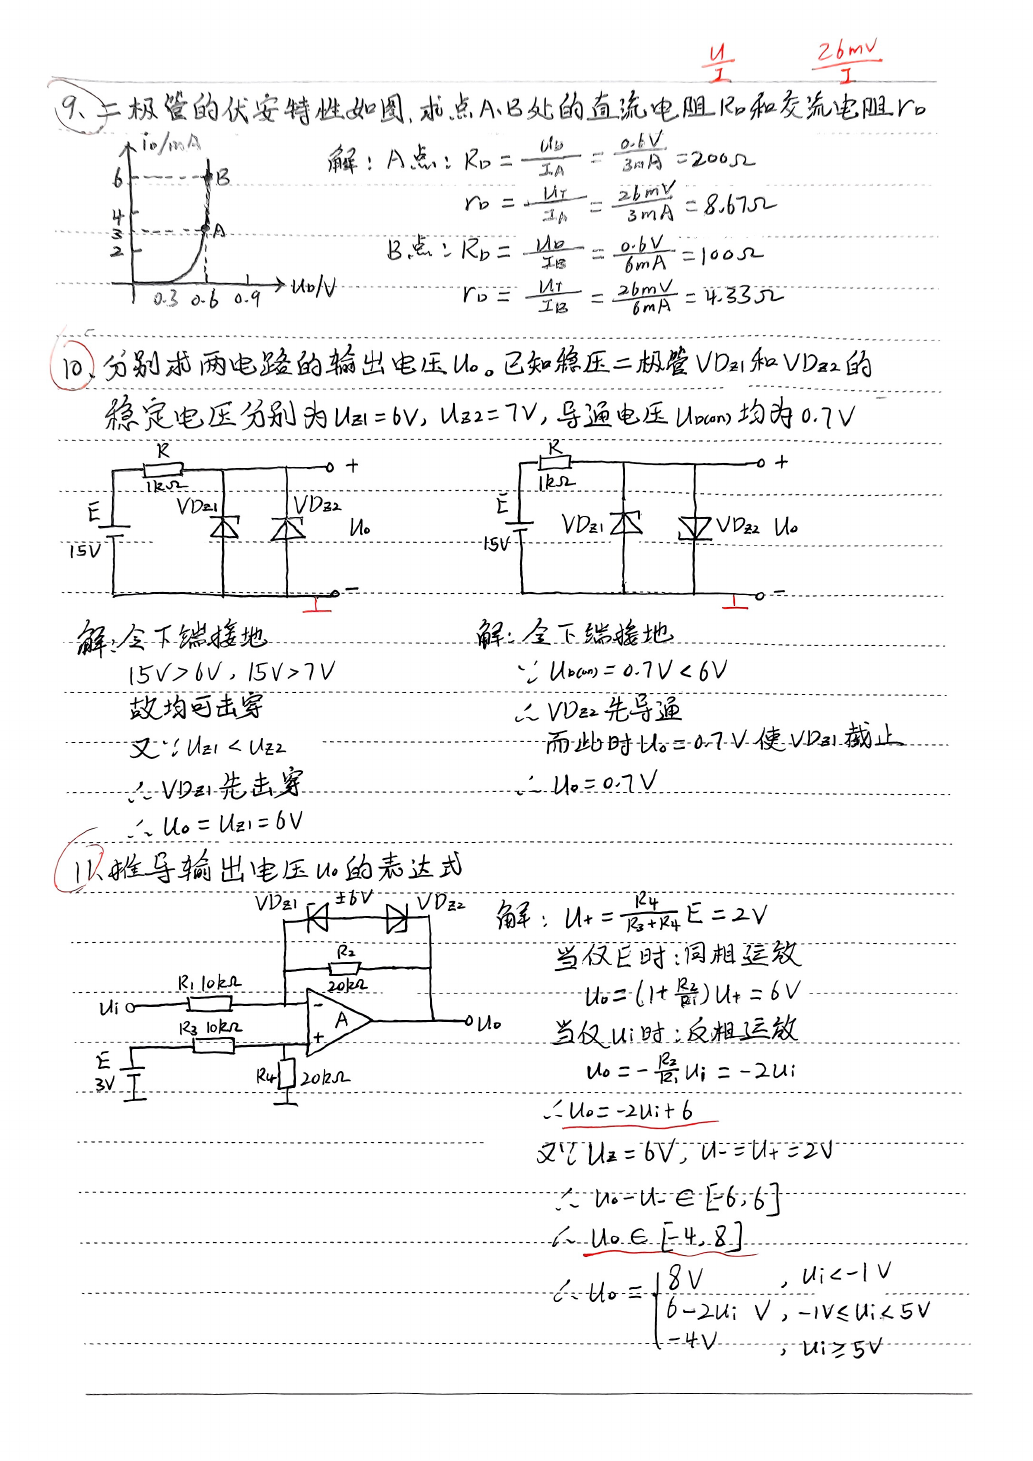 U/I 26mV/I
9、二极管的伏安特性如图,求点A、B处的直流电阻RD和交流电阻rD
iD/mA
6
B
4
3
A
2
0.3 0.6 0.9
UD/V
解：A点：RD = UD/IA = 0.6V/3mA = 200Ω
rD = UT/IA = 26mV/3mA = 8.67Ω
B点：RD = UD/IB = 0.6V/6mA = 100Ω
rD = UT/IB = 26mV/6mA = 4.33Ω
10、分别求两电路的输出电压Uo。已知稳压二极管VDZ1和VDZ2的
稳定电压分别为UZ1=6V, UZ2=7V,导通电压UD(on)均为0.7V
R
1kΩ
+
VDZ1
VDZ2
E
15V
Uo
-
R
1kΩ
+
E
15V
VDZ1
VDZ2
Uo
-
解:令下端接地
15V>6V, 15V>7V
故均可击穿
又∵UZ1<UZ2
∴VDZ1先击穿
∴Uo=UZ1=6V
解:令下端接地
∵UD(on)=0.7V<6V
∴VDZ2先导通
而此时Uo=0.7V使VDZ1截止
∴Uo=0.7V
11、推导输出电压uo的表达式
VDZ1 ±6V VDZ2
R2
20kΩ
R1 10kΩ
Ui
-
A
+
Uo
R3 10kΩ
E
3V
R4 20kΩ
解: U+ = R4/(R3+R4) E = 2V
当仅E时:同相运放
Uo=(1+R2/R1)U+=6V
当仅Ui时:反相运放
Uo=-R2/R1 Ui=-2Ui
∴Uo=-2Ui+6
又∵UZ=6V, U-=U+=2V
∴Uo-U-∈[-6,6]
∴Uo∈[-4,8]
∴Uo={8V , Ui<-1V
6-2Ui V, -1V≤Ui<5V
-4V , Ui≥5V